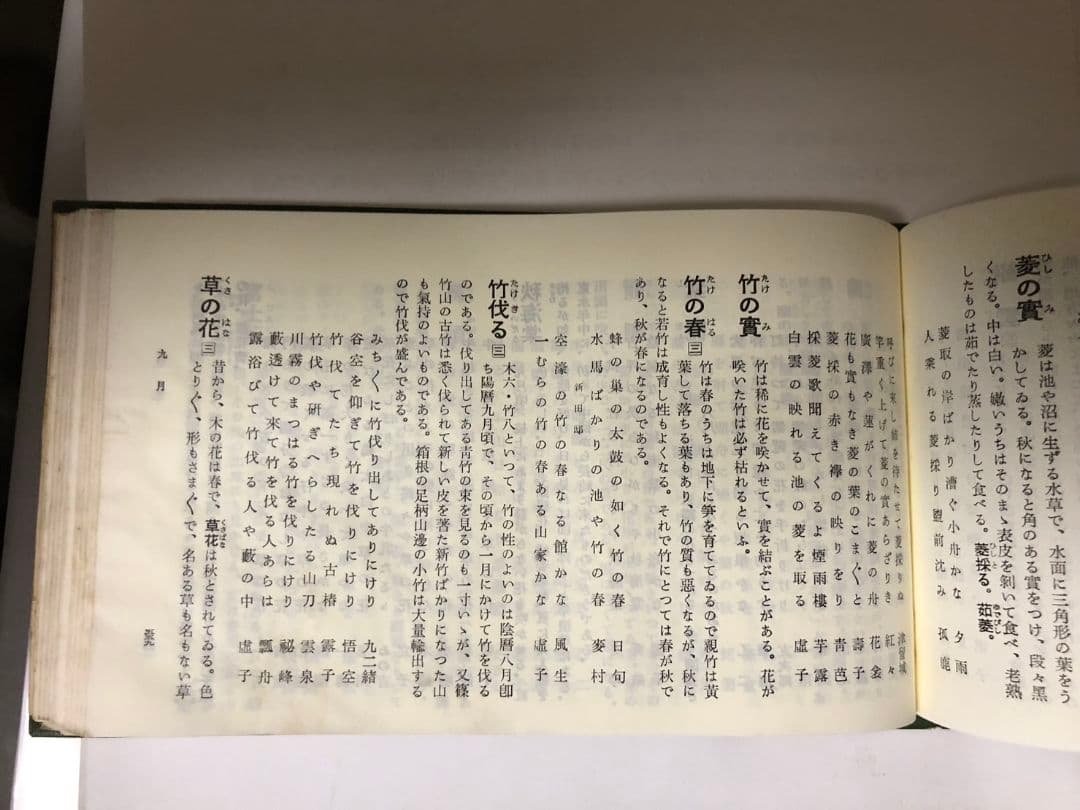 菱の實
菱は池や沼に生ずる水草で、水面に三角形の葉をう
かしてゐる。秋になると角のある實をつけ、段々黑
くなる。中は白い。嫩いうちはそのまゝ表皮を剝いで食べ、老熟
したものは茹でたり蒸したりして食べる。菱採る。茹菱。
菱取の岸ばかり漕ぐ小舟かな 夕雨
人乘れる菱採り盥前沈み 孤鹿
呼びに來し姉を待たせて菱採りぬ 津留城
竿重く上げて菱の實あらざりき 紅々
廣澤や蓮がくれに菱の舟 花金
花も實もなき菱の葉のこまぐと 壽子
菱採の赤き襷の映りをり 靑芭
採菱歌聞えてくるよ煙雨樓 芋露
白雲の映れる池の菱を取る 虛子
竹の實
竹は稀に花を咲かせて、實を結ぶことがある。花が
咲いた竹は必ず枯れるといふ。
竹の春 三
竹は春のうちは地下に笋を育ててゐるので親竹は黄
葉して落ちる葉もあり、竹の質も惡くなるが、秋に
なると若竹は成育し性もよくなる。それで竹にとつては春が秋で
あり、秋が春になるのである。
蜂の巢の太鼓の如く竹の春 日旬
水馬ばかりの池や竹の春 麥村
新田邸
空濠の竹の春なる館かな 風生
一むらの竹の春ある山家かな 虛子
竹伐る 三
木六・竹八といつて、竹の性のよいのは陰曆八月卽
ち陽曆九月頃で、その頃から一月にかけて竹を伐る
のである。伐り出してある靑竹の束を見るのも一寸いゝが、又篠
竹山の古竹は悉く伐られて新しい皮を著た新竹ばかりになつた山
も氣持のよいものである。箱根の足柄山邊の小竹は大量輸出する
ので竹伐が盛んである。
みちくに竹伐り出してありにけり 九二緖
谷空を仰ぎて竹を伐りにけり 悟空
竹伐てたち現れぬ古椿 露子
竹伐や研ぎへらしたる山刀 雲泉
川霧のまつはる竹を伐りにけり 祕峰
藪透けて來て竹を伐る人あらは 瓢舟
露浴びて竹伐る人や藪の中 虛子
草の花 三
昔から、木の花は春で、草花は秋とされてゐる。色
とりぐ、形もさまぐで、名ある草も名もない草
九月